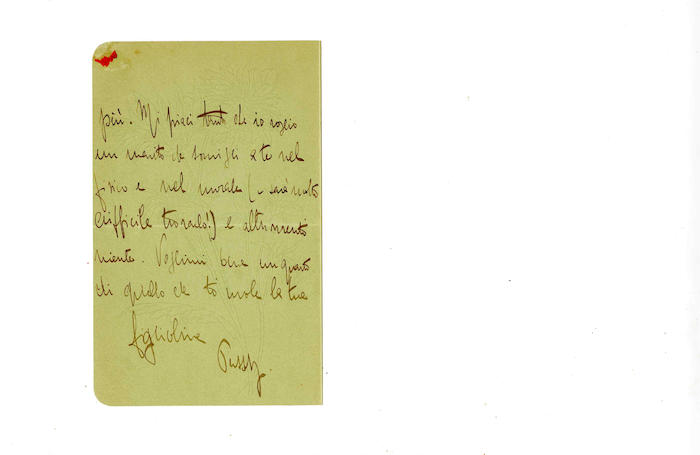 più. Mi piaci tanto che io voglio
un marito che somigli a te nel
fisico e nel morale (e sarà molto
difficile trovarlo!) e altrimenti
niente. Vogliimi bene un quarto
di quello che ti vuole la tua
figliolina